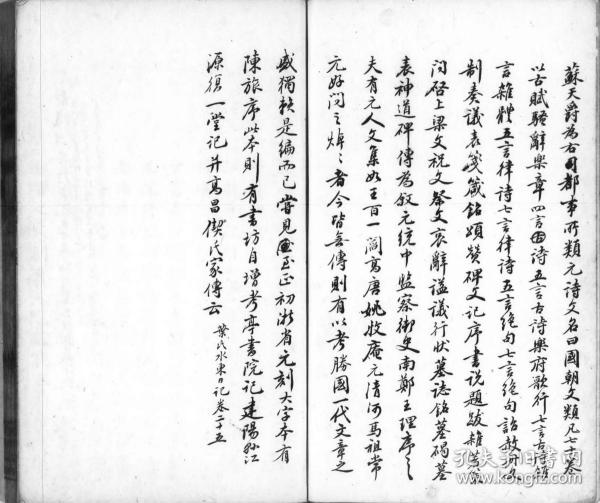 蘇天爵為右司都事所類元詩文名曰國朝文類凡七十卷
以古賦騷辭樂章四言詩五言古詩樂府歌行七言古詩雜
言雜體五言律詩七言律詩五言絕句七言絕句詔赦冊文
制奏議表箋箴銘頌贊碑文記序書說題跋雜著策
問啓上梁文祝文祭文哀辭謚議行狀墓誌銘墓碣墓
表神道碑傳為敘元統中監察御史南鄭王理序之
夫有元人文集如王百一閻高唐姚牧庵元清河馬祖常
元好問之焯〻者今皆無傳則有以考勝國一代文章之
盛獨賴是編而已嘗見至正初浙省元刻大字本有
陳旅序此本則有書坊自增考亭書院記建陽縣江
源復一堂記并高昌偰氏家傳云 葉氏水東日記卷二十五
孔夫子旧书网
www.kongfz.com